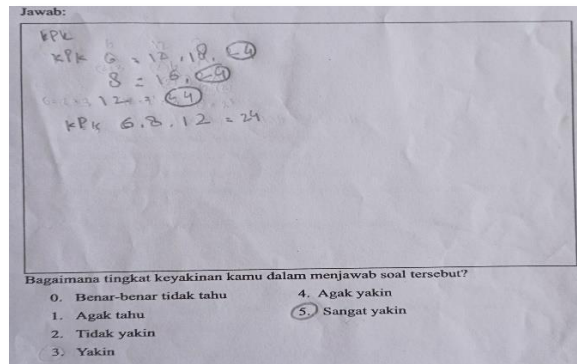 Jawab:
KPK
KPK 6 = 12, 18, 24
8 = 16, 24
12 = 24
KPK 6.8.12 = 24
Bagaimana tingkat keyakinan kamu dalam menjawab soal tersebut?
0. Benar-benar tidak tahu
1. Agak tahu
2. Tidak yakin
3. Yakin
4. Agak yakin
5. Sangat yakin